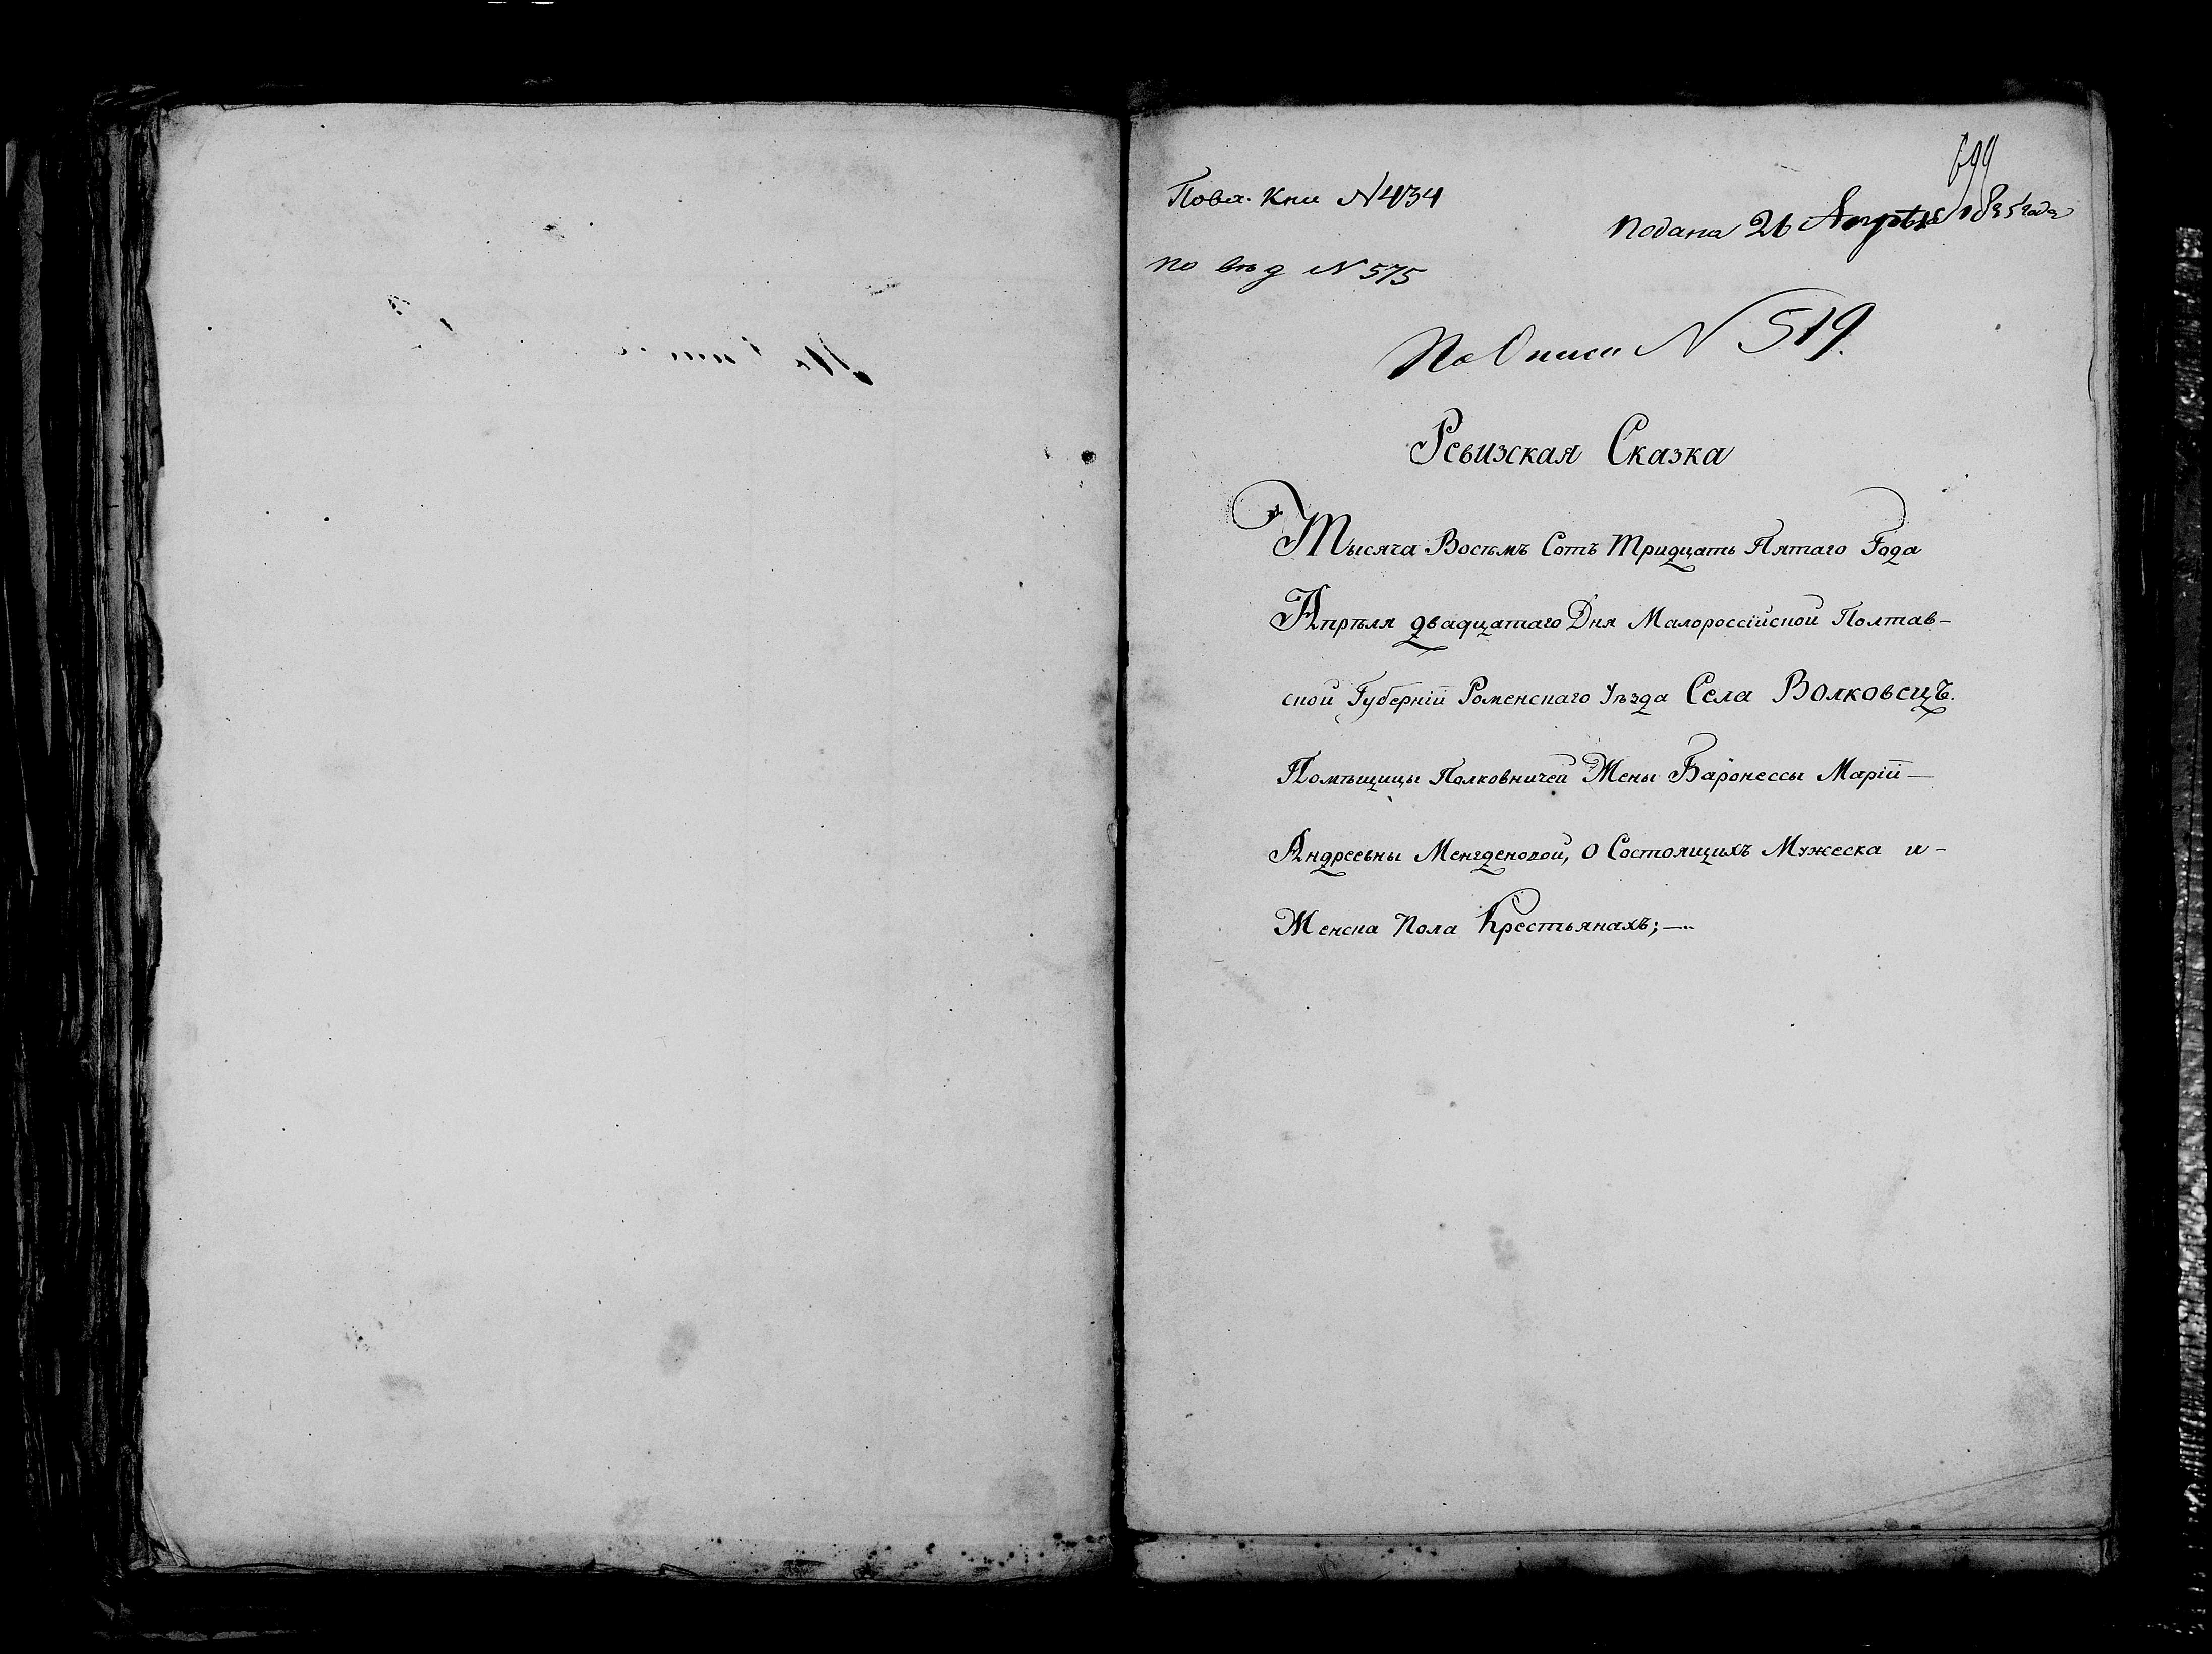 699
Пова. Кни N 434
подана 26 Апрѣля 1835 года
по вѣд N 575
По Описи N 519.
Ревизская Сказка
Тысяча Восѣмъ Сотъ Тридцать Пятаго Года
Апрѣля двадцатаго Дня Малороссійской Полтав-
ской Губерніи Роменскаго Уѣзда Села Волковецъ.
Помѣщицы Полковничей Жены Баронессы Маріи—
Андреевны Менгденовой, о Состоящихъ Мужеска и-
Женска Пола Крестьянахъ;—